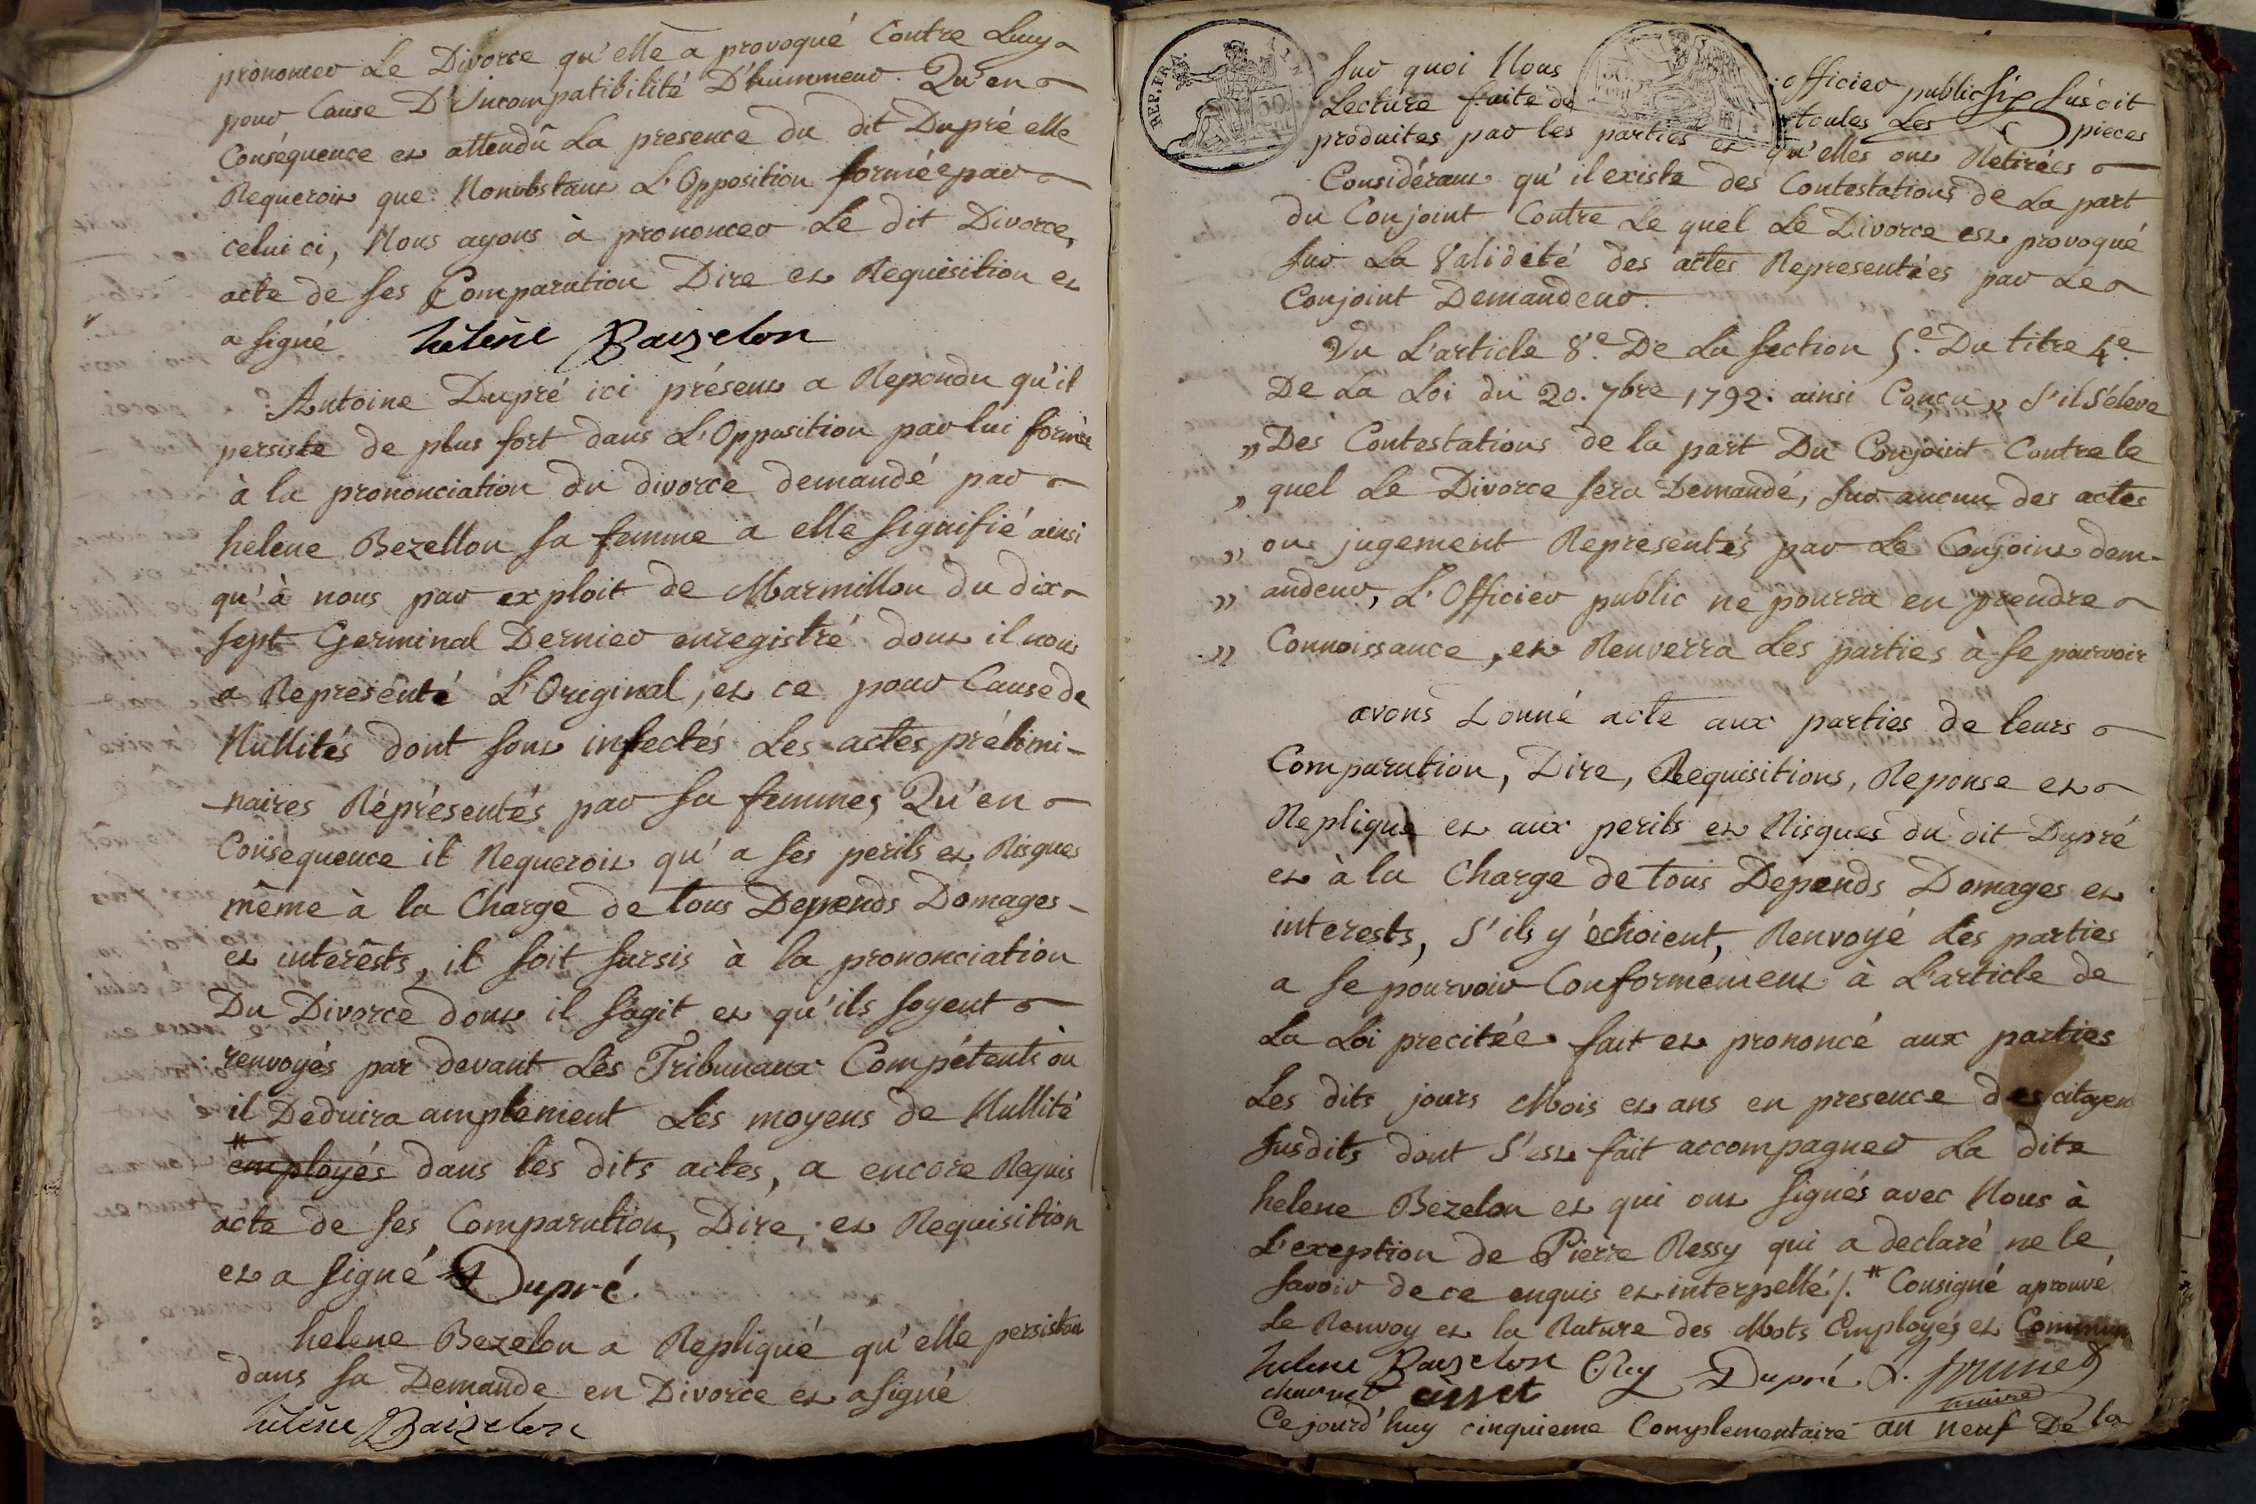 prononcer Le Divorce qu'elle a provoqué Contre Luy
pour Cause D'Incompatibilité D'hummeur. Qu'en
Conséquence et attendû La presence du dit Dupré elle
Requeroit que Nonobstant L'Opposition formée par
celui ci, Nous ayons à prononcer Le dit Divorce,
acte de ses Comparution Dire et Requisition et
a signé hélène Baizelon
Antoine Dupré ici présent a Repondu qu'il
persiste de plus fort dans L'Opposition par lui formée
à la prononciation du divorce demandé par
helene Bezellon sa femme a elle signifié ainsi
qu'à nous par exploit de Marmillon du dix
sept Germinal Dernier enregistré dont il nous
a Representé L'Original, et ce pour Cause de
Nullités dont sont infectés Les actes prélimi-
naires Réprésentés par sa femme, Qu'en
Conséquence il Requeroit qu'a ses perils et Risques
même à la Charge de tous Depends Domages
et interêsts, il soit sursis à la prononciation
Du Divorce dont il s'agit et qu'ils soyent
renvoyés par devant Les Tribunaux Compétents ou
il Deduira amplement Les moyens de Nullité
# employés dans les dits actes, a encore Requis
acte de ses Comparution, Dire, et Requisition
et a signé A Dupré
helene Bezelon a Repliqué qu'elle persistoit
dans sa Demande en Divorce et a signé
hélène Baizelon
REP. FRA. AIN
Sur quoi Nous officier public susdit
Lecture faite de toutes Les pieces
produites par les parties et qu'elles ont Retirées
Considérant qu'il existe des Contestations de La part
du Conjoint Contre Le quel Le Divorce est provoqué
sur La Validité des actes Representées par Le
Conjoint Demandeur.
Vu L'article 8.e De La section 5.e Du titre 4.e
De La Loi du 20. 7bre 1792. ainsi Conçu „ S'il s'éleve
„ Des Contestations de la part Du Conjoint Contre le
„ quel Le Divorce sera Demandé, sur aucun des actes
„ ou jugement Representés par Le Conjoint dem-
„ andeur, L'Officier public ne pourra en prendre
„ Connoissance, et Renverra Les parties à se pourvoir
avons Donné acte aux parties de leurs
Comparution, Dire, Requisitions, Reponse et
Replique et aux perils et Risques du dit Dupré
et à la Charge de tous Depends Domages et
interests, S'ils y échoient, Renvoyé Les parties
a se pourvoir Conformément à L'article de
La Loi precitée fait et prononcé aux parties
Les dits jours Mois et ans en presence des citoyens
susdits dont s'est fait accompagner La dite
helene Bezelon et qui ont signés avec Nous à
L'exeption de Pierre Ressy qui a declaré ne le
savoir de ce enquis et interpellé /. # Consigné aprouvé
Le Renvoy et la Rature des Mots Employés et
helene Baizelon Rey A Dupré
Ce jourd'huy cinquieme Complementaire an neuf De la